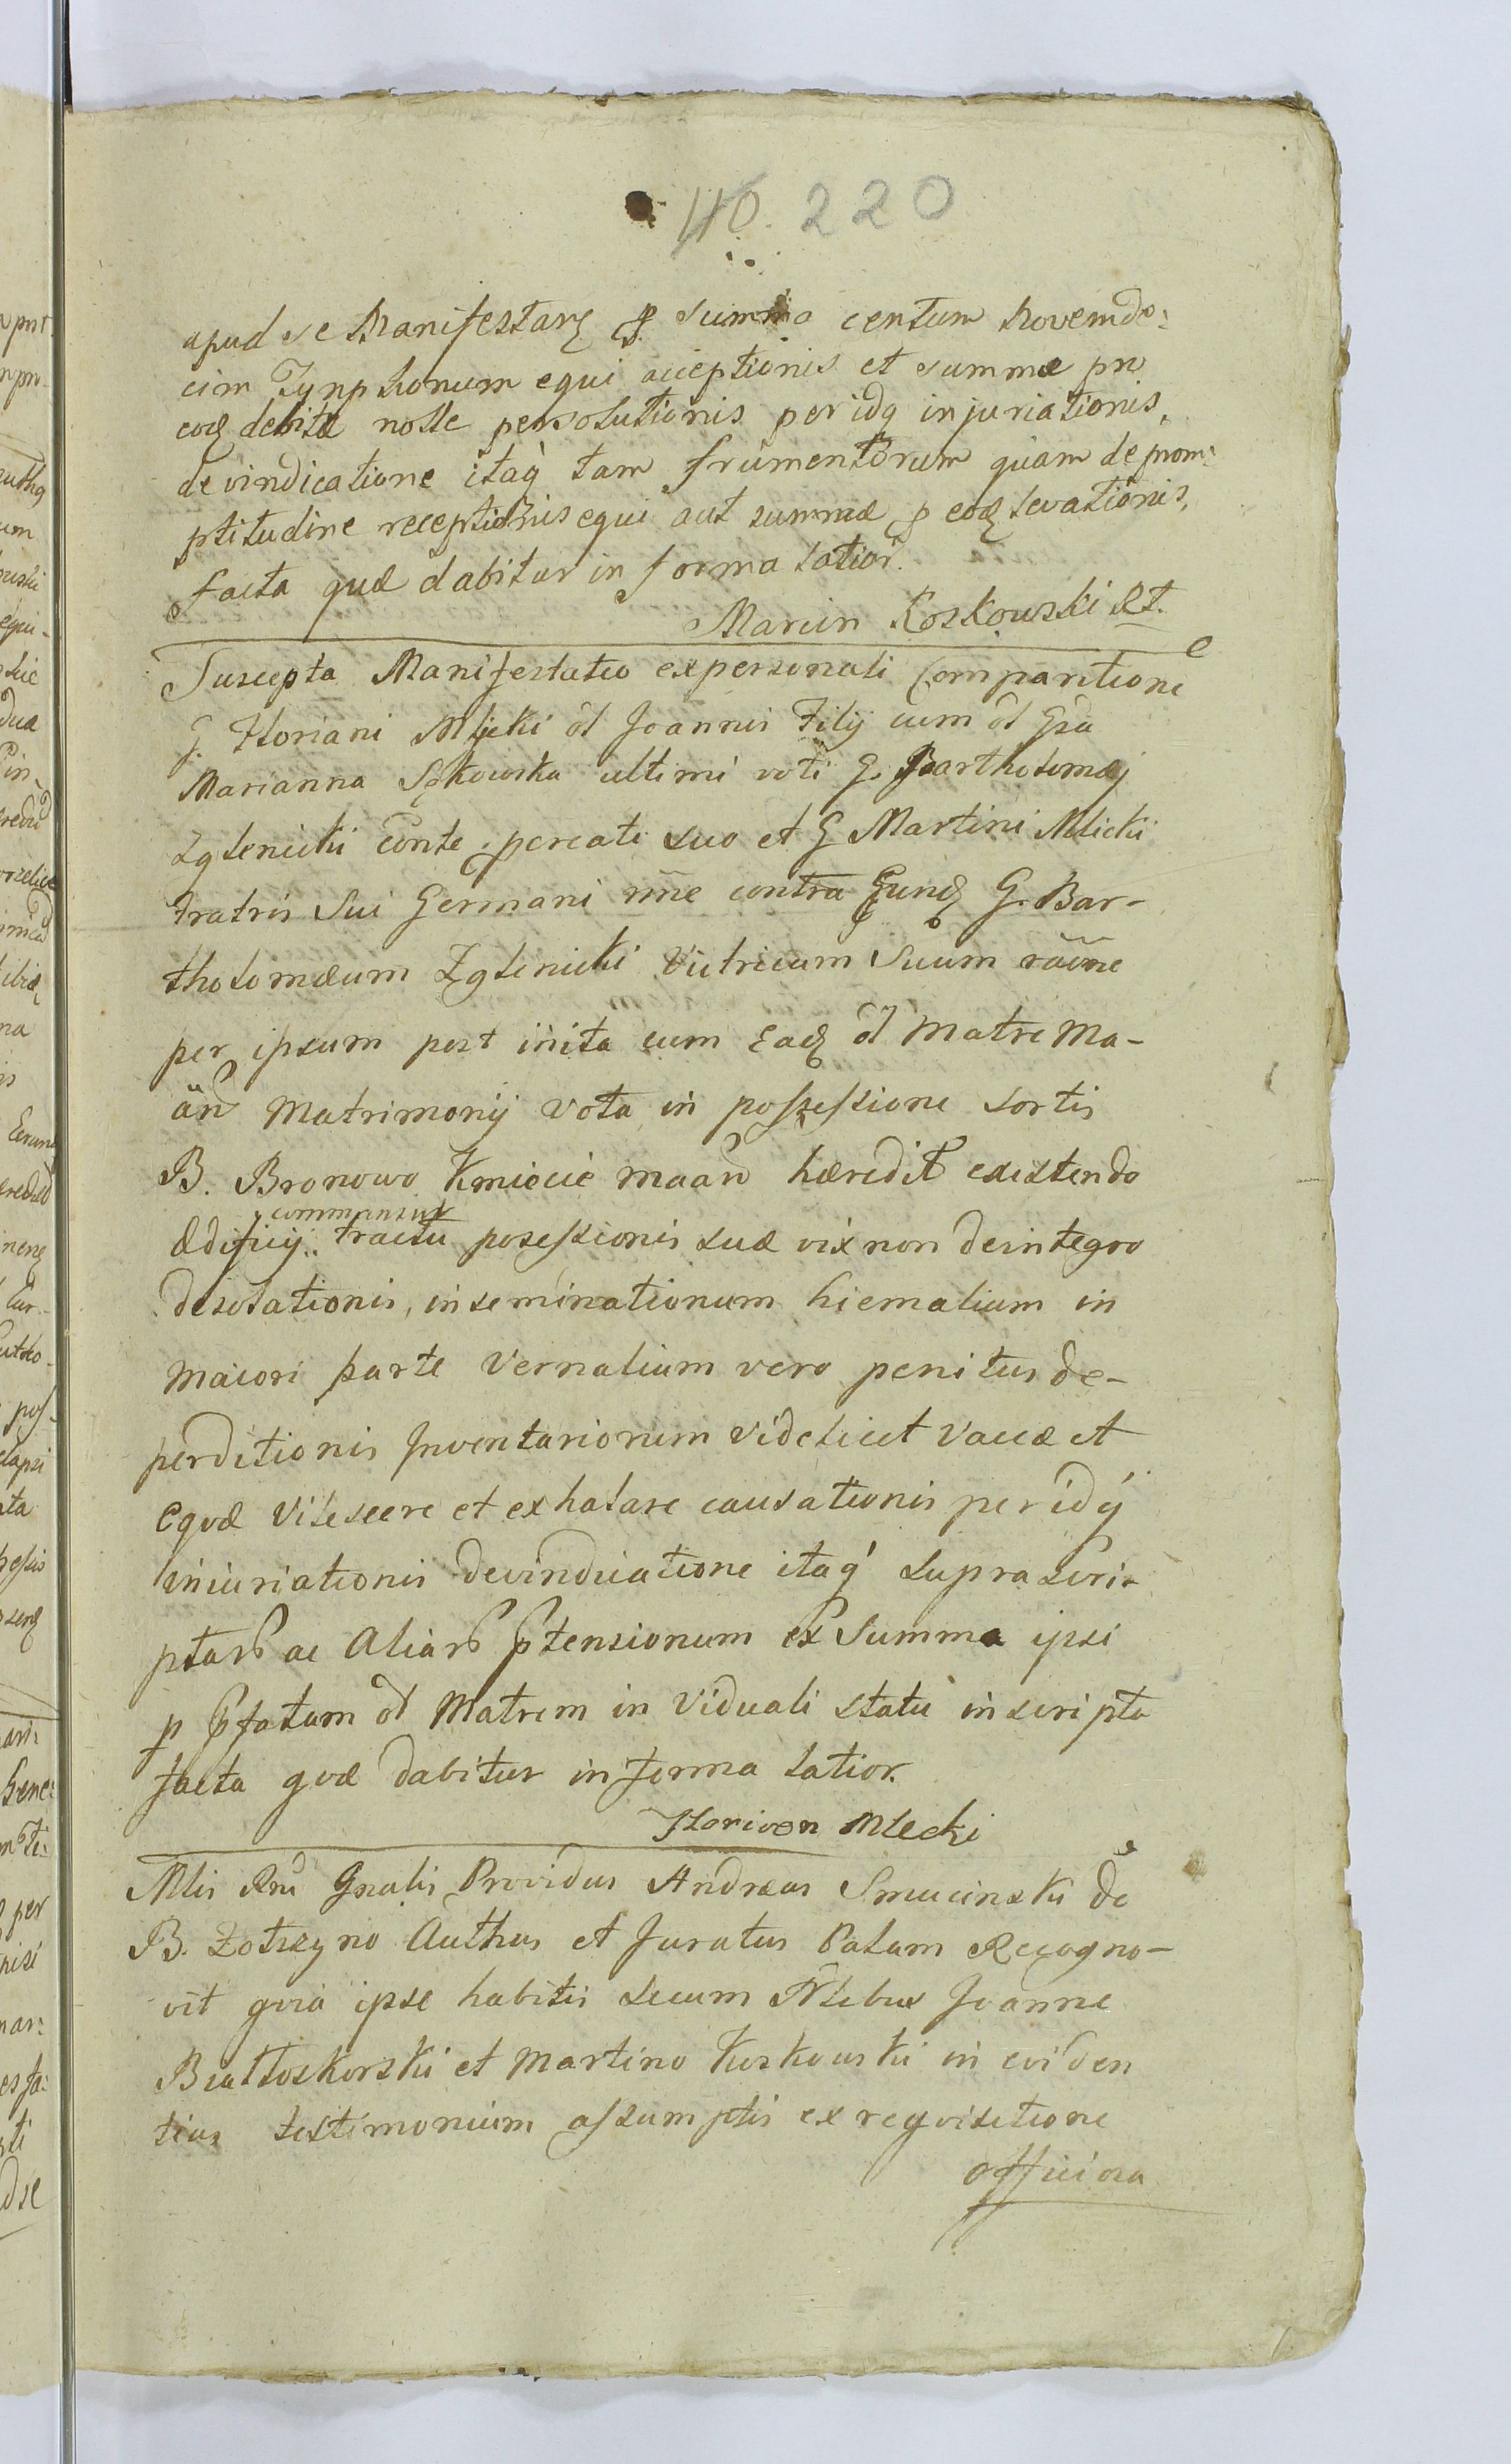 110. 220
apud se Manifestans p summa centum novemde:
cim Tynphonum equi acceptionis et summæ pro
eoq debitæ nolle persolutionis per idq injuriationis,
de vindicatione itaq tam frumentorum quam de prom:
ptitudine receptionis equi aut summæ p eoq levationis,
facta quæ dabitur in forma latior.
Marcin Koskowski Rt.
Suscepta Manifestatio ex personali Comparitione
G. Floriani Mlicki ol Joannis Filij cum ol Gsa
Marianna Sękowska ultimi voti G. Bartholomæj
Zglenicki conte. pcreati suo et G Martini Mlicki
Fratris Sui Germani nne contra Eunq G. Bar-
tholomæum Zglenicki Vitricum Suum raone
per ipsum post inita cum Eaq ol Matre Ma-
an Matrimonij vota in possessione sortis
B. Bronowo Kmiecie maan hæredit existendo
commansus
ædificij tractu posessionis suæ vix non de integro
desolationis, inseminationum hiemalium in
Maiori parte Vernalium vero penitus de-
perditionis Inventariorum videlicet Vaccæ et
Eqvæ Vilescere et exhalare causationis per idq
iniuriationis de vindicatione itaq supra scri-
ptar ac Aliar ptensionum ex Summa ipsi
p pfatam ol Matrem in Viduali statu inscripta
facta qvæ dabitur in forma latior.
Florian Mlecki
Mlis Rni Gnalis Providus Andreas Smucinski de
B. Zotrzyno Authus et Juratus Palam Recogno-
vit qvia ipse habitis secum Nlibus Joanne
Białłoskorski et Martino Koskowski in eviden
tius testimonium assumptis ex reqvisitione
officiosa